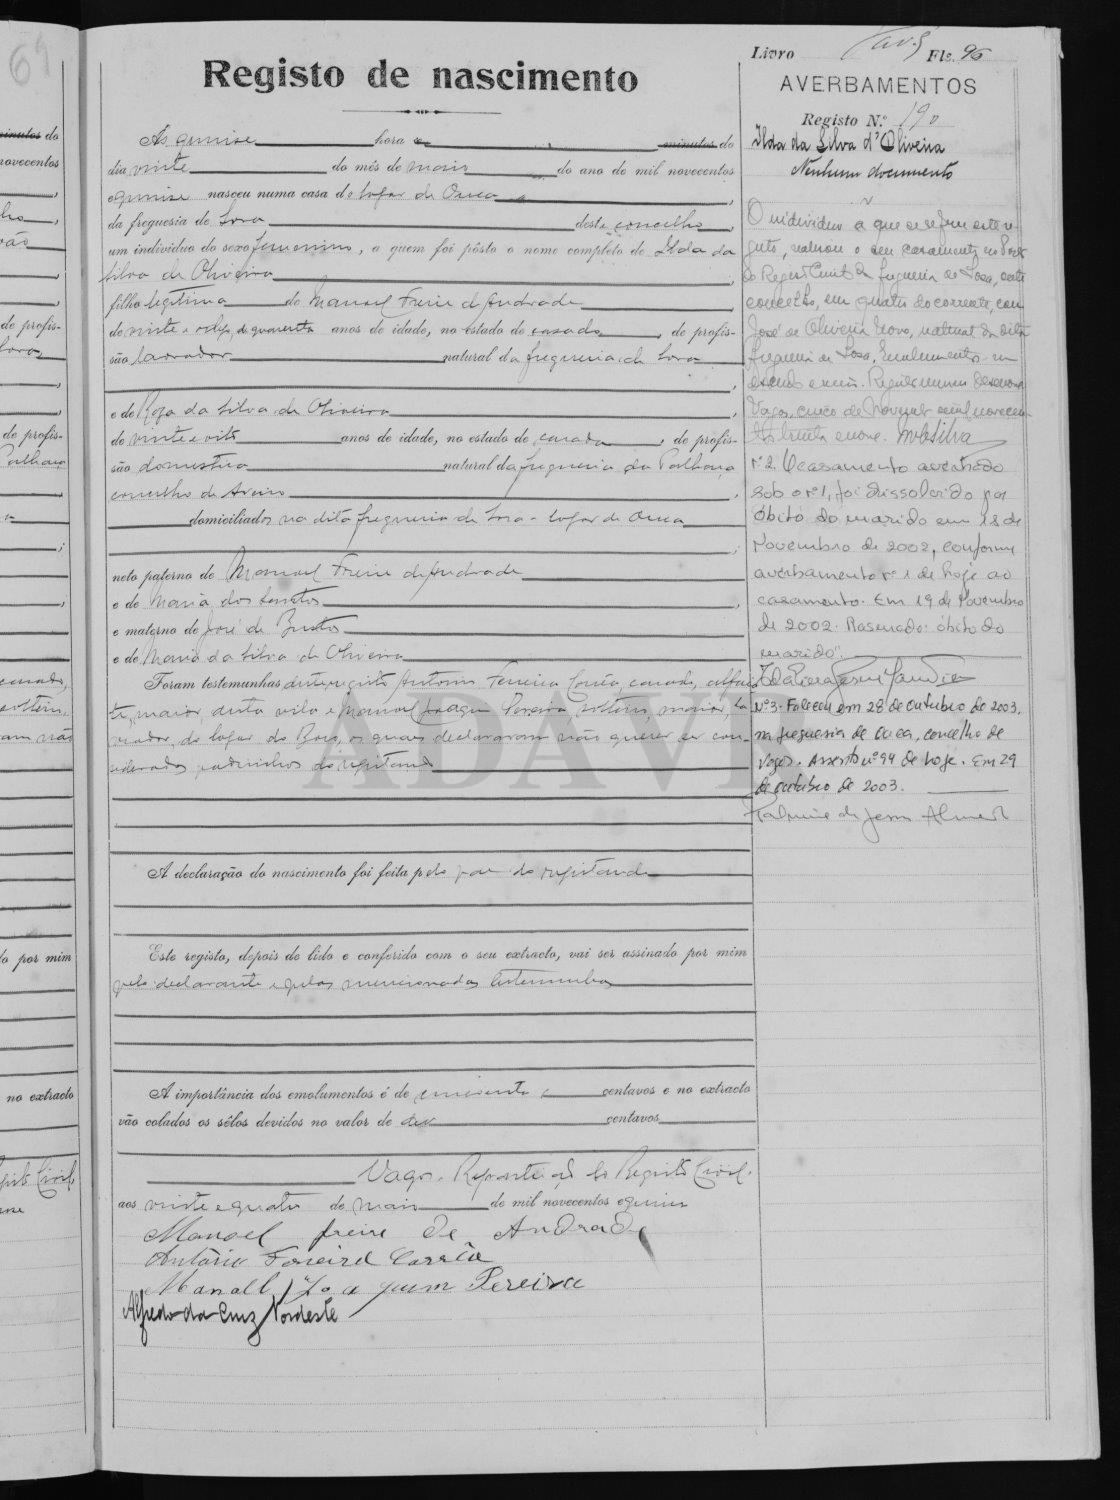 69
Registo de nascimento
Às quinze hora e minutos do
dia vinte do mês de maio do ano de mil novecentos
e quinze nasceu numa casa do logar de Ouca
da freguesia de Soza deste concelho,
um indivíduo do sexo feminino, a quem foi pôsto o nome completo de Ilda da
Silva de Oliveira
filho legitima de Manoel Freire d'Andrade
de vinte e oito, de quarenta anos de idade, no estado de casado, de profis-
são lavrador natural da freguesia de Soza
e de Roza da Silva de Oliveira
de vinte e oito anos de idade, no estado de casada, de profis-
são domestica natural da freguesia da Palhaça
concelho de Aveiro
domiciliados na dita freguesia de Soza - logar de Ouca
neto paterno de Manoel Freire d'Andrade
e de Maria dos Santos
e materno de José de
e de Maria da Silva de Oliveira
Foram testemunhas deste registo Antonio Ferreira Corrêa, casado, alfaia
te, maior, desta vila e Manoel Joaquim Pereira, solteiro, maior, la
vrador, do logar do os quaes declararam não querer ser con-
siderados padrinhos do registando
A declaração do nascimento foi feita pelo pae do registando
Este registo, depois de lido e conferido com o seu extracto, vai ser assinado por mim
pelo declarante e pelas mencionadas testemunhas
A importância dos emolumentos é de cincoenta centavos e no extracto
vão colados os sêlos devidos no valor de dez centavos
Vagos, Repartição do Registo Civil,
aos vinte e quatro de maio de mil novecentos e quinze
Manoel freire de Andrade
António Ferreira Corrêa
Manoel Joaquim Pereira
Alfredo da Cruz Nordeste
Livro Fls. 96
AVERBAMENTOS
Registo N.º 190
Ilda da Silva d'Oliveira
Nenhum documento
O individuo a que se refere este re
gisto, realisou o seu casamento no Posto
do Registo Civil da freguesia de Soza, deste
concelho, em quatro do corrente, com
José de Oliveira Novo, natural da dita
freguesia de Soza. Emolumentos um
escudo e meio. Registo numero
Vagos, cinco de Novembro de mil novecen-
tos trinta e nove.
nº 2. O casamento averbado
sob o nº 1, foi dissolvido por
óbito do marido em 18 de
Novembro de 2002, conforme
averbamento nº 1 de hoje ao
casamento. Em 19 de Novembro
de 2002. Rasurado: óbito do
marido".
Nº3- Faleceu em 28 de outubro de 2003,
na freguesia de Ouca, concelho de
Vagos. Assento nº 94 de hoje. Em 29
de outubro de 2003.
ADAVR
minutos do
novecentos
de profis-
de profis-
Palhaça
casado,
solteiro,
não
do por mim
no extracto
Registo Civil,